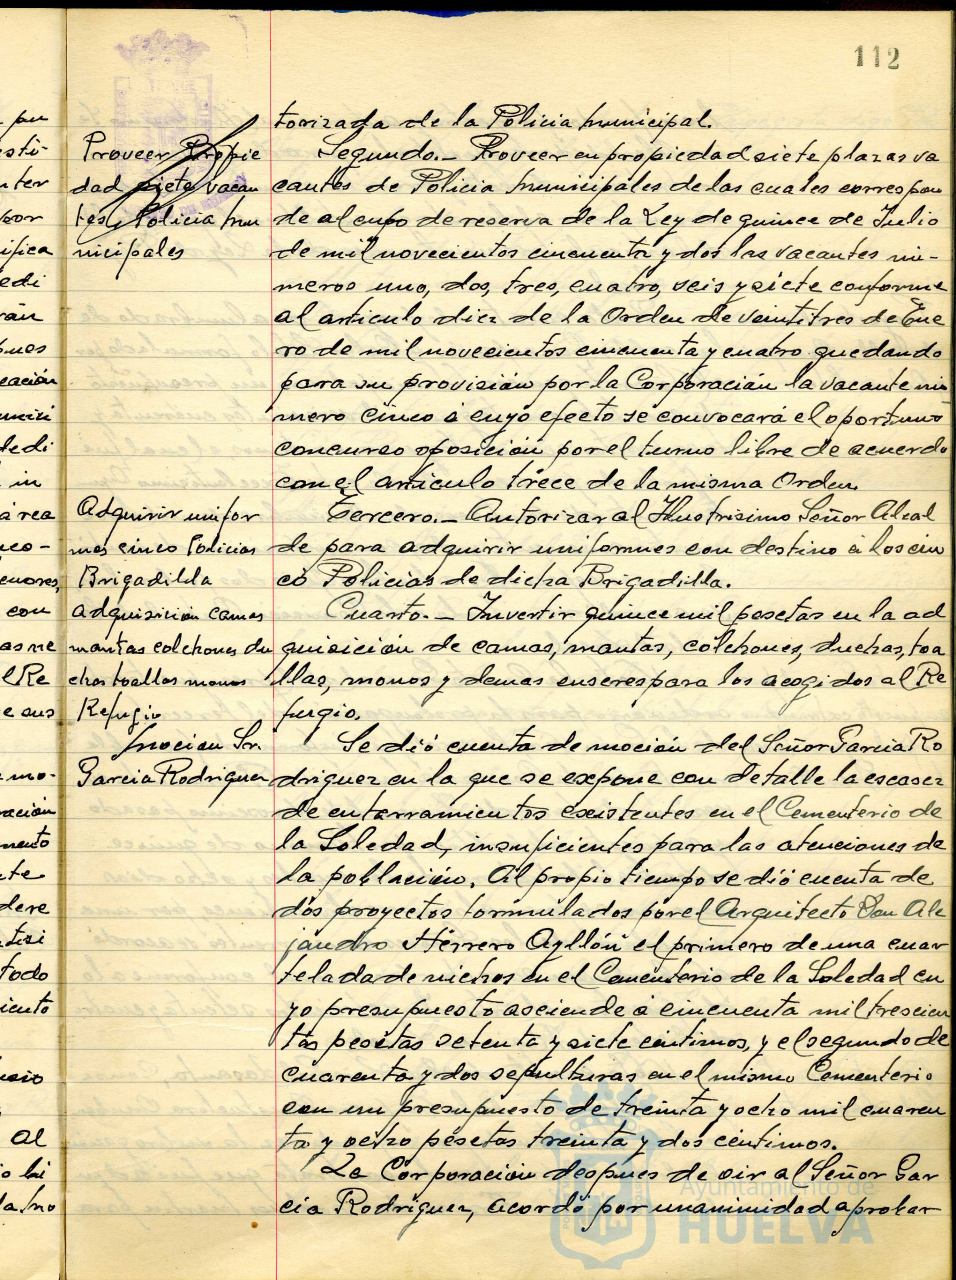 112
torizada de la Policia municipal.
Proveer Propie
dad siete vacan
tes Policia mu
nicipales
Segundo.- Proveer en propiedad siete plazas va
cantes de Policia municipales de las cuales correspon
de al cupo de reserva de la Ley de quince de Julio
de mil novecientos cincuenta y dos las vacantes nú-
meros uno, dos, tres, cuatro, seis y siete conforme
al articulo diez de la Orden de veintitres de Ene
ro de mil novecientos cincuenta y cuatro quedando
para su provisión por la Corporación la vacante nú
mero cinco á cuyo efecto se convocará el oportuno
concurso oposición por el turno libre de acuerdo
con el articulo trece de la misma Orden.
Adquirir unifor
mes cinco Policias
Brigadilla
Tercero.- Autorizar al Ilustrisimo Señor Alcal
de para adquirir uniformes con destino á los cin
co Policias de dicha Brigadilla.
adquisición camas
mantas colchones du
chas toallas monos
Refugio
Cuarto.- Invertir quince mil pesetas en la ad
quisición de camas, mantas, colchones, duchas, toa
llas, monos y demas enseres para los acogidos al Re
fugio.
moción Sr.
Garcia Rodriguez
Se dió cuenta de moción del Señor Garcia Ro
driguez en la que se expone con detalle la escasez
de enterramientos existentes en el Cementerio de
la Soledad, insuficientes para las atenciones de
la población. Al propio tiempo se dió cuenta de
dos proyectos formulados por el Arquitecto Don Ale
jandro Herrero Ayllón el primero de una cuar
telada de nichos en el Cementerio de la Soledad cu
yo presupuesto asciende á cincuenta mil trescien
tas pesetas setenta y siete centimos, y el segundo de
cuarenta y dos sepulturas en el mismo Cementerio
con un presupuesto de treinta y ocho mil cuaren
ta y ocho pesetas treinta y dos centimos.
La Corporación despues de oir al Señor Gar
cia Rodriguez, acordó por unanimidad aprobar
Ayuntamiento de
HUELVA